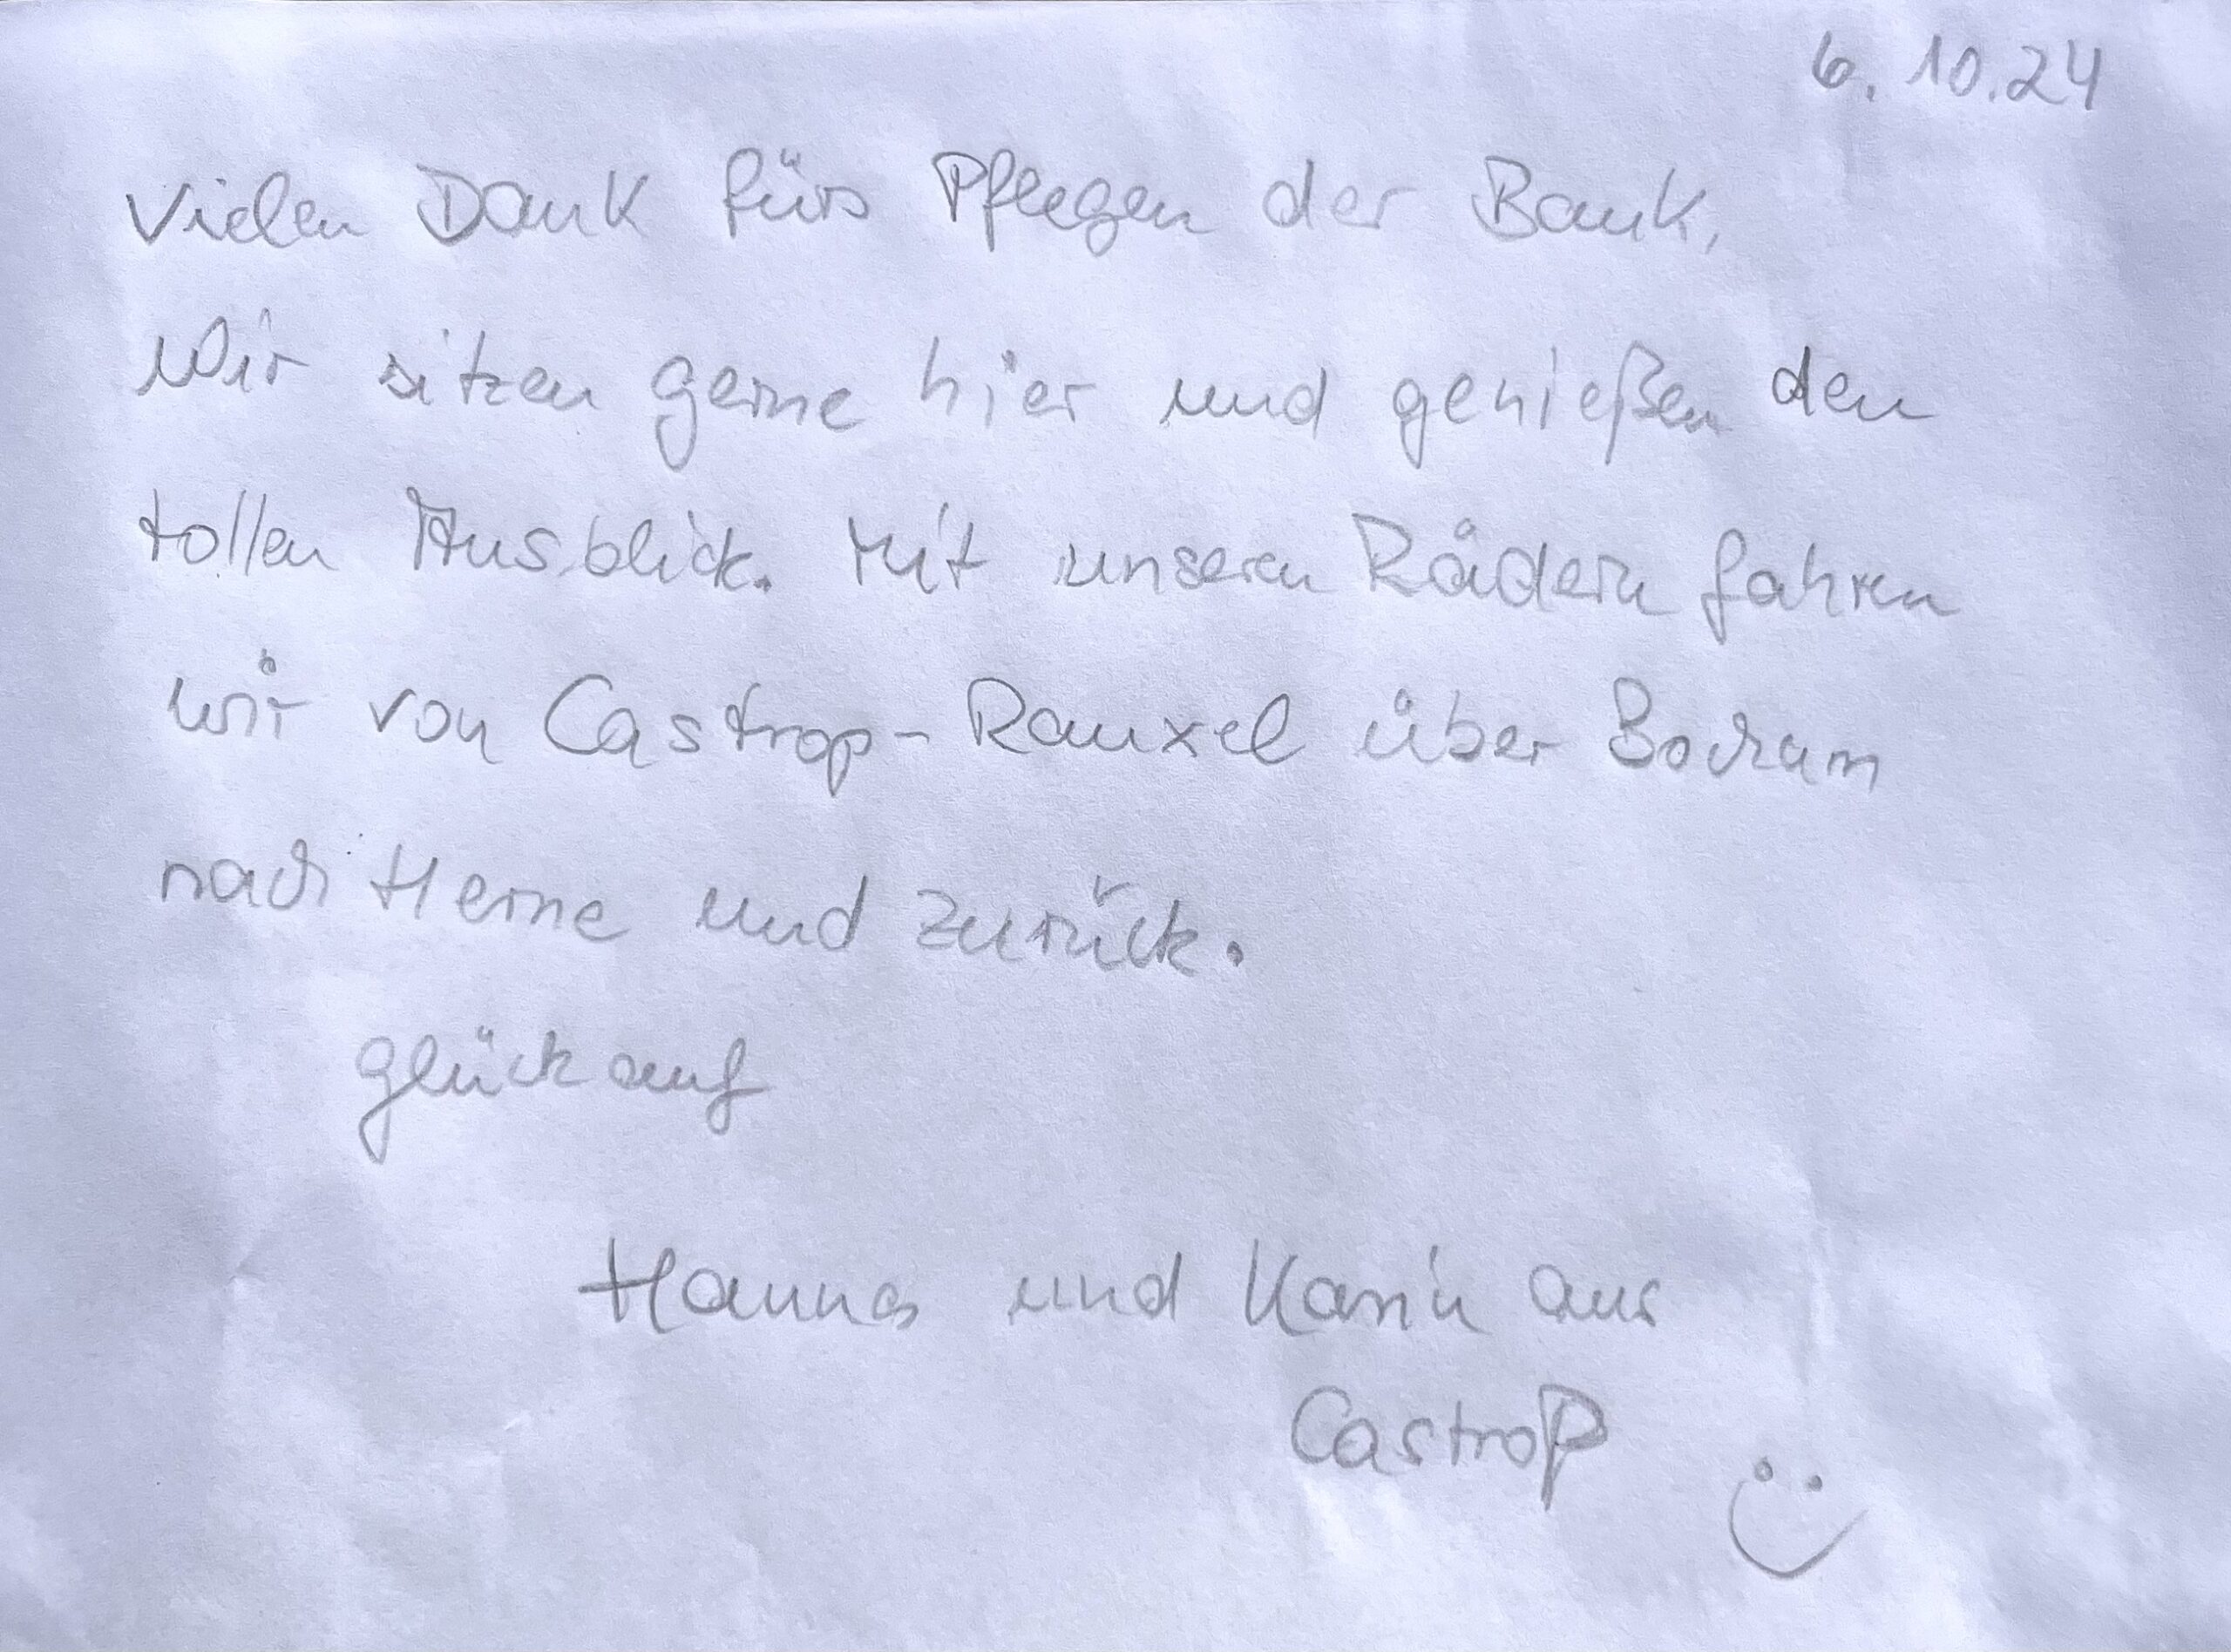 6.10.24
Vielen Dank fürs Pflegen der Bank,
Wir sitzen gerne hier und genießen den
tollen Ausblick. Mit unseren Rädern fahren
wir von Castrop-Rauxel über Bochum
nach Herne und zurück.
Glück auf
und Karin aus
Castrop